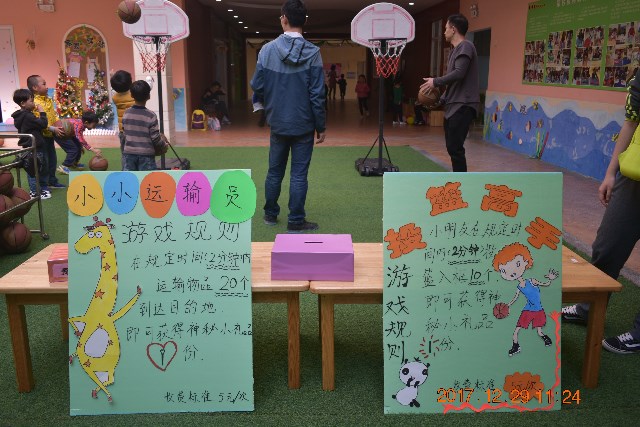 小小运输员
游戏规则
在规定时间(2分钟)内
运输物品20个
到达目的地
即可获得神秘小礼品
1份.
收费标准 5元/次
投篮高手
游戏规则
小朋友在规定时
间内(2分钟)投
篮入框10个
即可获得神
秘小礼品
1份.
收费标准 5元/次
2017.12.29 11:24